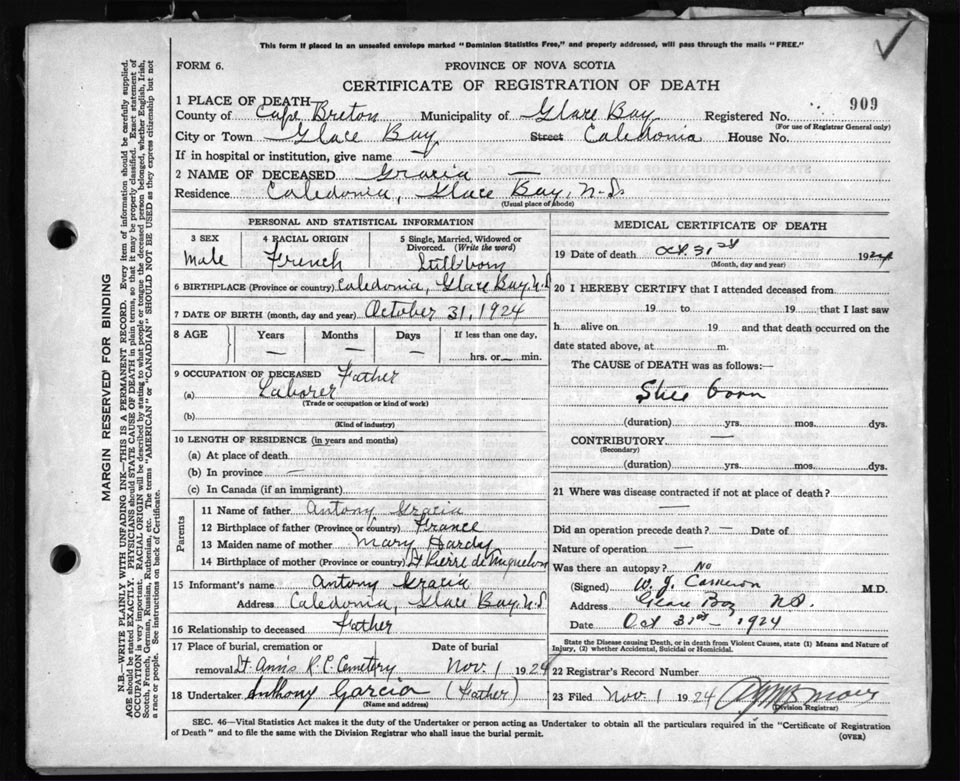 This form if placed in an unsealed envelope marked "Dominion Statistics Free," and properly addressed, will pass through the mails "FREE."
FORM 6.
PROVINCE OF NOVA SCOTIA
CERTIFICATE OF REGISTRATION OF DEATH
909
1 PLACE OF DEATH
County of Cape Breton Municipality of Glace Bay Registered No.
(For use of Registrar General only)
City or Town Glace Bay Street Caledonia House No.
If in hospital or institution, give name —
2 NAME OF DECEASED Gracia —
Residence Caledonia, Glace Bay, N.S.
(Usual place of abode)
PERSONAL AND STATISTICAL INFORMATION
3 SEX
Male
4 RACIAL ORIGIN
French
5 Single, Married, Widowed or Divorced. (Write the word)
Stillborn
6 BIRTHPLACE (Province or country) Caledonia, Glace Bay, N.S.
7 DATE OF BIRTH (month, day and year) October 31, 1924
8 AGE
Years —
Months —
Days —
If less than one day,
hrs. or — min.
9 OCCUPATION OF DECEASED Father
(a) Laborer
(Trade or occupation or kind of work)
(b)
(Kind of industry)
10 LENGTH OF RESIDENCE (in years and months)
(a) At place of death
(b) In province —
(c) In Canada (if an immigrant)
Parents
11 Name of father Antony Gracia
12 Birthplace of father (Province or country) France
13 Maiden name of mother Mary Hardy
14 Birthplace of mother (Province or country) St Pierre de Miquelon
15 Informant's name Antony Gracia
Address Caledonia, Glace Bay, N.S.
16 Relationship to deceased Father
17 Place of burial, cremation or Date of burial
removal St. Anns R.C. Cemetery Nov. 1 1924
18 Undertaker Anthony Garcia (Father)
(Name and address)
MEDICAL CERTIFICATE OF DEATH
19 Date of death Oct. 31st 1924
(Month, day and year)
20 I HEREBY CERTIFY that I attended deceased from
19 to 19 that I last saw
h alive on 19 and that death occurred on
date stated above, at m.
The CAUSE of DEATH was as follows:—
Still born
(duration) yrs. mos. dys.
CONTRIBUTORY —
(Secondary)
(duration) yrs. mos. dys.
21 Where was disease contracted if not at place of death?
—
Did an operation precede death? — Date of
Nature of operation —
Was there an autopsy? No
(Signed) W. J. Cameron M.D.
Address Glace Bay N.S.
Date Oct 31st — 1924
State the Disease causing Death, or in death from Violent Causes, state (1) Means and Nature of Injury, (2) whether Accidental, Suicidal or Homicidal.
22 Registrar's Record Number
23 Filed Nov. 1 1924
(Division Registrar)
SEC. 46—Vital Statistics Act makes it the duty of the Undertaker or person acting as Undertaker to obtain all the particulars required in the "Certificate of Registration
of Death" and to file the same with the Division Registrar who shall issue the burial permit.
(OVER)
MARGIN RESERVED FOR BINDING
N.B.—WRITE PLAINLY WITH UNFADING INK—THIS IS A PERMANENT RECORD. Every item of information should be carefully supplied.
AGE should be stated EXACTLY. PHYSICIANS should STATE CAUSE OF DEATH in plain terms, so that it may be properly classified. Exact statement of
OCCUPATION is very important. RACIAL ORIGIN will be described by stating to what people or tongue the deceased person belonged, whether English, Irish,
Scotch, French, German, Russian, Ruthenian, etc. The terms "AMERICAN" or "CANADIAN" SHOULD NOT BE USED as they express citizenship but not
a race or people. See instructions on back of Certificate.